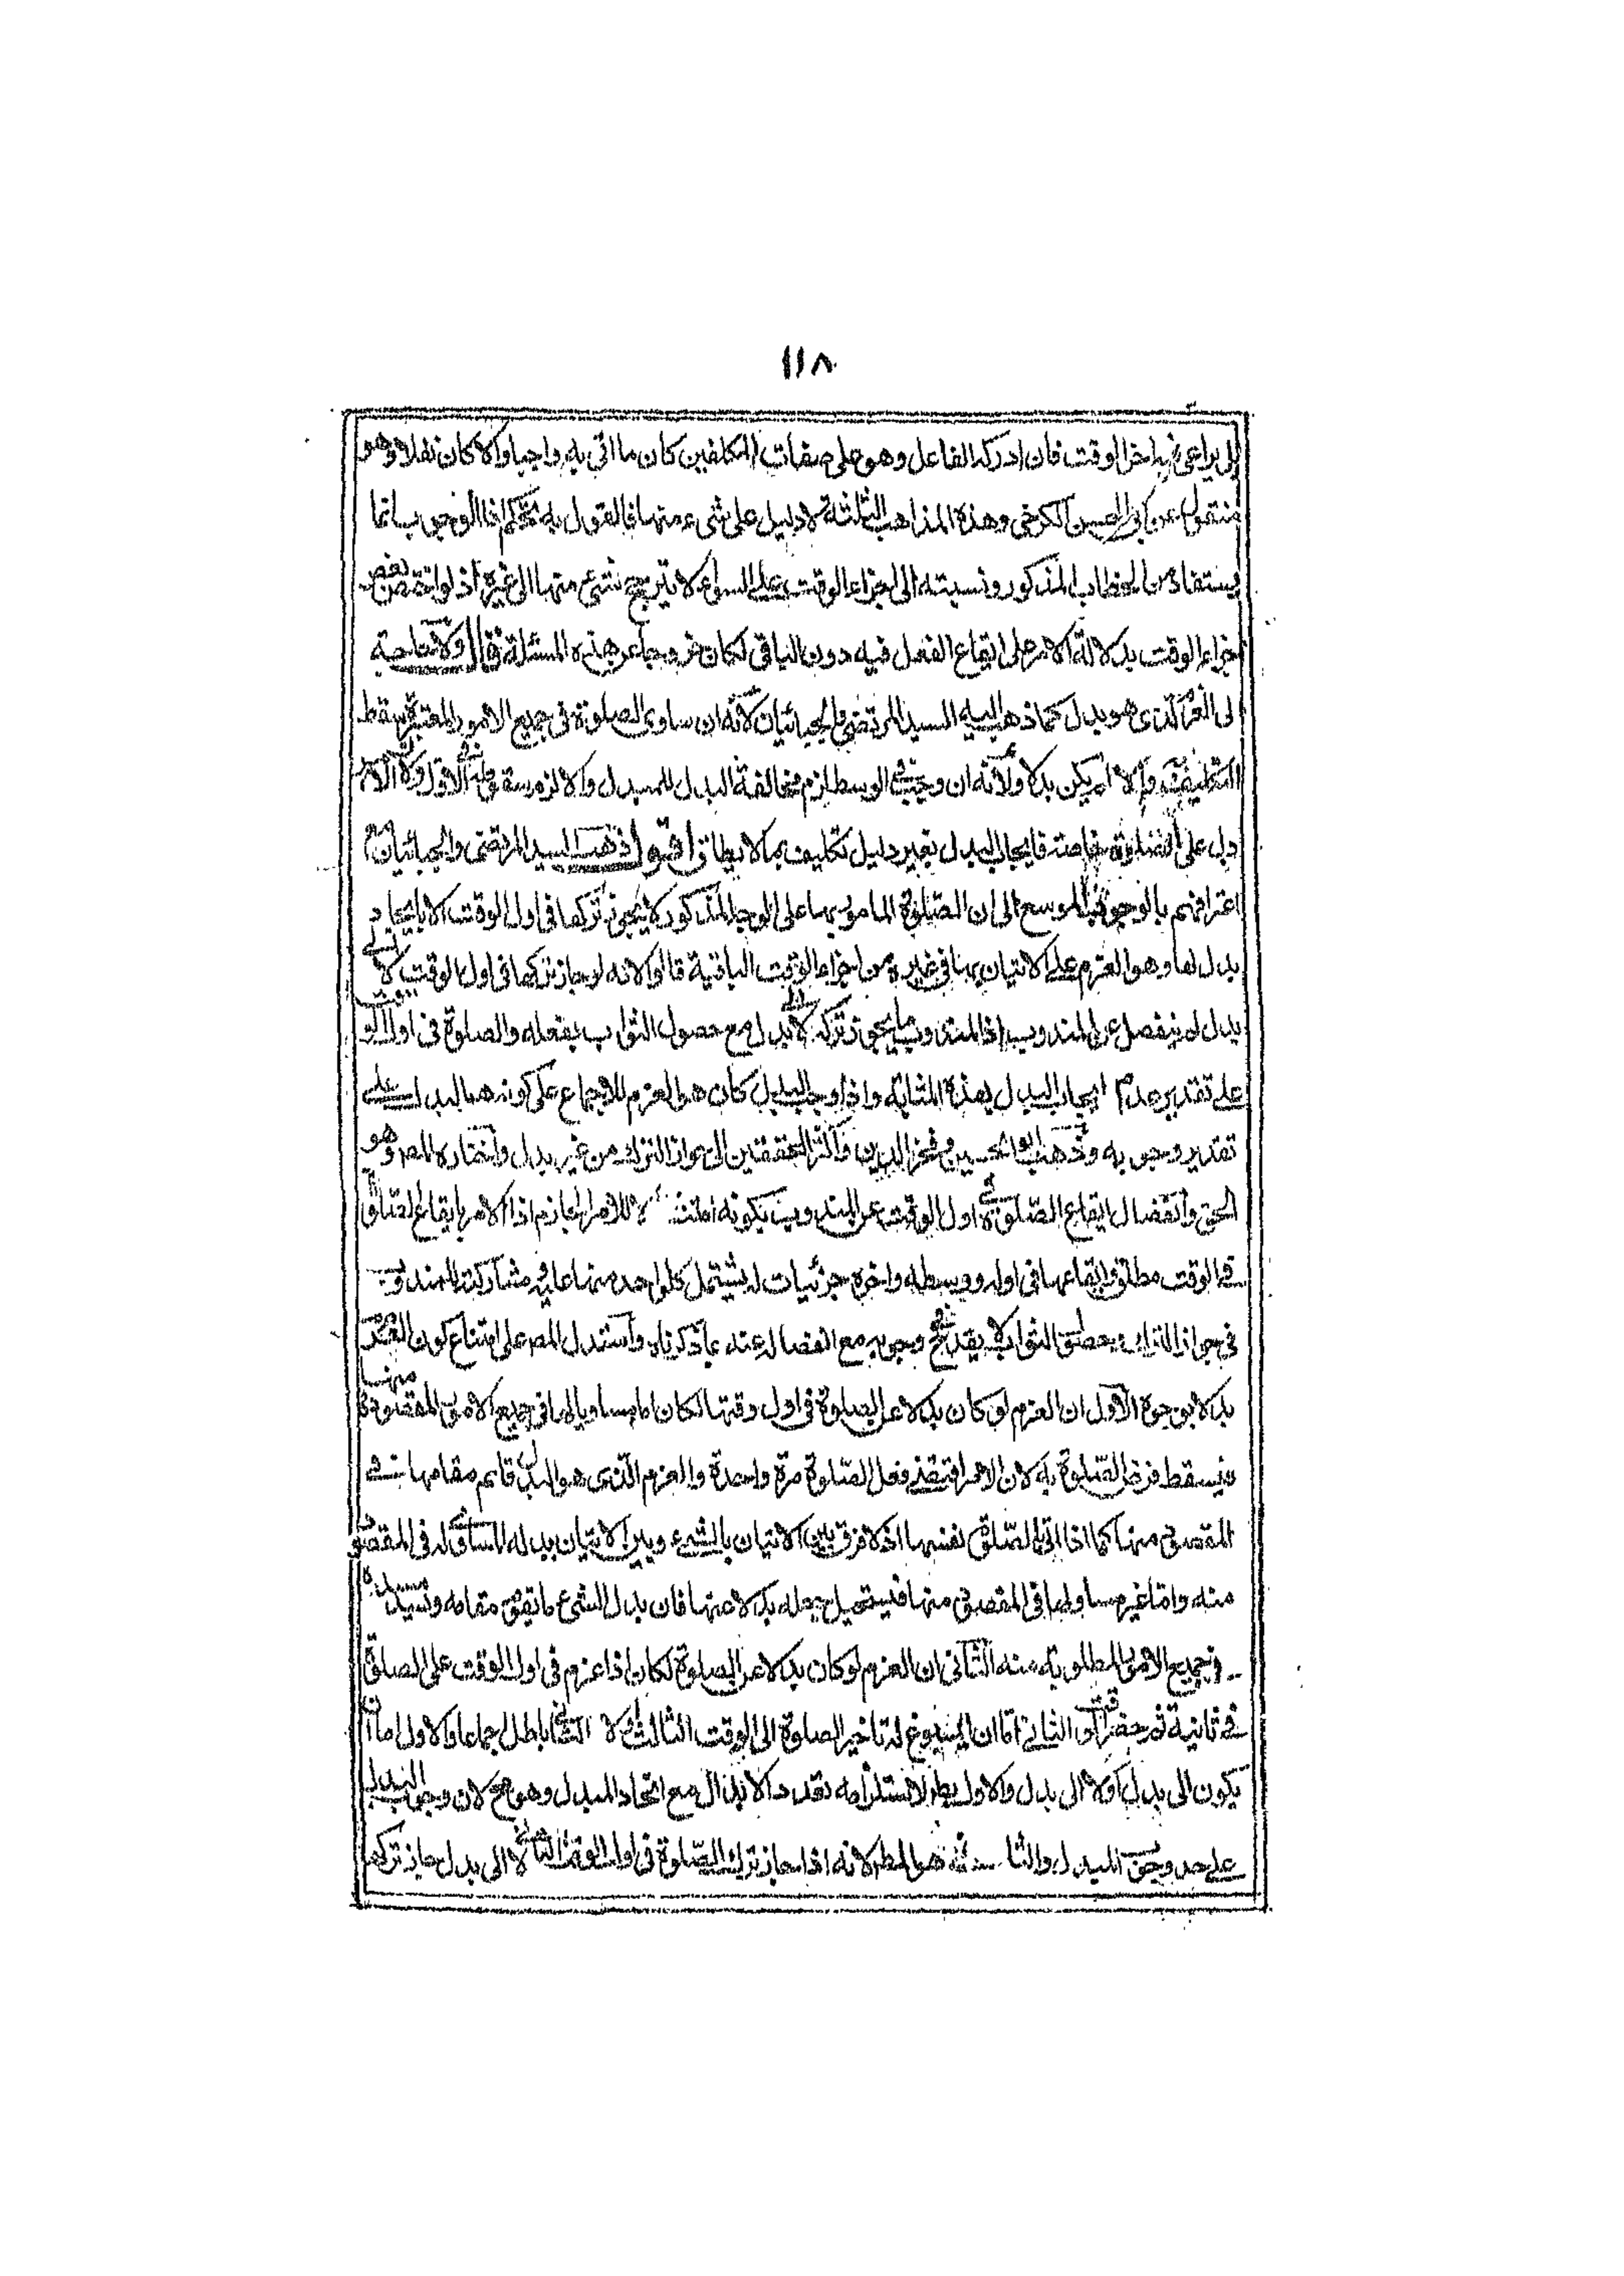 ١١٨
بل يراعى فيه اخر الوقت فان ادركه الفاعل وهو على صفات المكلفين كان ما اتى به واجبا والا كان نفلا وهو
منقول عن ابى الحسين الكرخى وهذه المذاهب الثلثة لا دليل على شىء منها فالقول به تحكم اذا الوجوب انما
يستفاد من الخطاب المذكور ونسبته الى اجزاء الوقت على السواء لا ترجيح لشئ منها الى غيره اذ لو اختص بعض
اجزاء الوقت بدلالة الامر على ايقاع الفعل فيه دون الباقى لكان خروجا عن هذه المسئلة قال ولا حاجة
الى العزم الذى هو بدل كما ذهب اليه السيد المرتضى والجبائيان لانه ان ساوى الصلوة فى جميع الامور المعتبرة سقط
التكليف به والا لم يكن بدلا ولانه ان وجب فى الوسط لزم مخالفة البدل للمبدل والا لزم سقوطه فى الاول ولان الامر
دل على الصلوة خاصة فايجاب البدل بغير دليل تكليف بما لا يطاق اقول ذهب السيد المرتضى والجبائيان
اعترافهم بالوجوب الموسع الى ان الصلوة المامور بها على الوجه المذكور لا يجوز تركها فى اول الوقت الا بايجاد
بدل لها وهو العزم على الاتيان بها فى غيره من اجزاء الوقت الباقية قالوا لانه لو جاز تركها فى اول الوقت لا الى
بدل لم ينفصل عن المندوب اذ المندوب ما يجوز تركه لا الى بدل مع حصول الثواب بفعله والصلوة فى اول الوقت
على تقدير عدم ايجاب البدل بهذه المثابة واذا وجب البدل كان هو العزم للاجماع على كونه هو البدل على
تقدير وجوبه وذهب ابو الحسين وفخر الدين واكثر المحققين الى جواز الترك من غير بدل واختاره المص وهو
الحق وانفصال ايقاع الصلوة فى اول الوقت عن المندوب بكونه للامر الجازم اذ الامر بايقاع الصلوة
فى الوقت مطلق وايقاعها فى اوله ووسطه واخره جزئيات له يشتمل كل واحد منها عليه ومشاركته للمندوب
فى جواز الترك وحصول الثواب لا يقدح فى وجوبه مع انفصاله عنه بما ذكرناه واستدل المص على امتناع كون العزم
بدلا بوجوه الاول ان العزم لو كان بدلا عن الصلوة فى اول وقتها لكان اما مساويا لها فى جميع الامور المقصودة منها
فيسقط فرض الصلوة به لان الامر اقتضى فعل الصلوة مرة واحدة والعزم الذى هو البدل قائم مقامها فى
المقصود منها كما اذا اتى بالصلوة نفسها اذ لا فرق بين الاتيان بالشىء وبين الاتيان ببدله المساوى له فى المقصود
منه واما غير مساو لها فى المقصود منها فيستحيل جعله بدلا عنها فان بدل الشئ ما يقوم مقامه ويسد مسده
فى جميع الامور المطلوبة منه الثانى ان العزم لو كان بدلا عن الصلوة لكان اذا عزم فى اول الوقت على الصلوة
فى ثانيه ثم حضر الوقت الثانى اما ان يسوغ له تاخير الصلوة الى الوقت الثالث او لا الثانى باطل اجماعا والاول اما ان
يكون الى بدل او لا الى بدل والاول بط لاستلزامه تعدد الابدال مع اتحاد المبدل وهو مح لان وجوب البدل
على حد وجوب المبدل والثانى هو المط لانه اذا جاز ترك الصلوة فى اول الوقت الثانى لا الى بدل جاز تركها